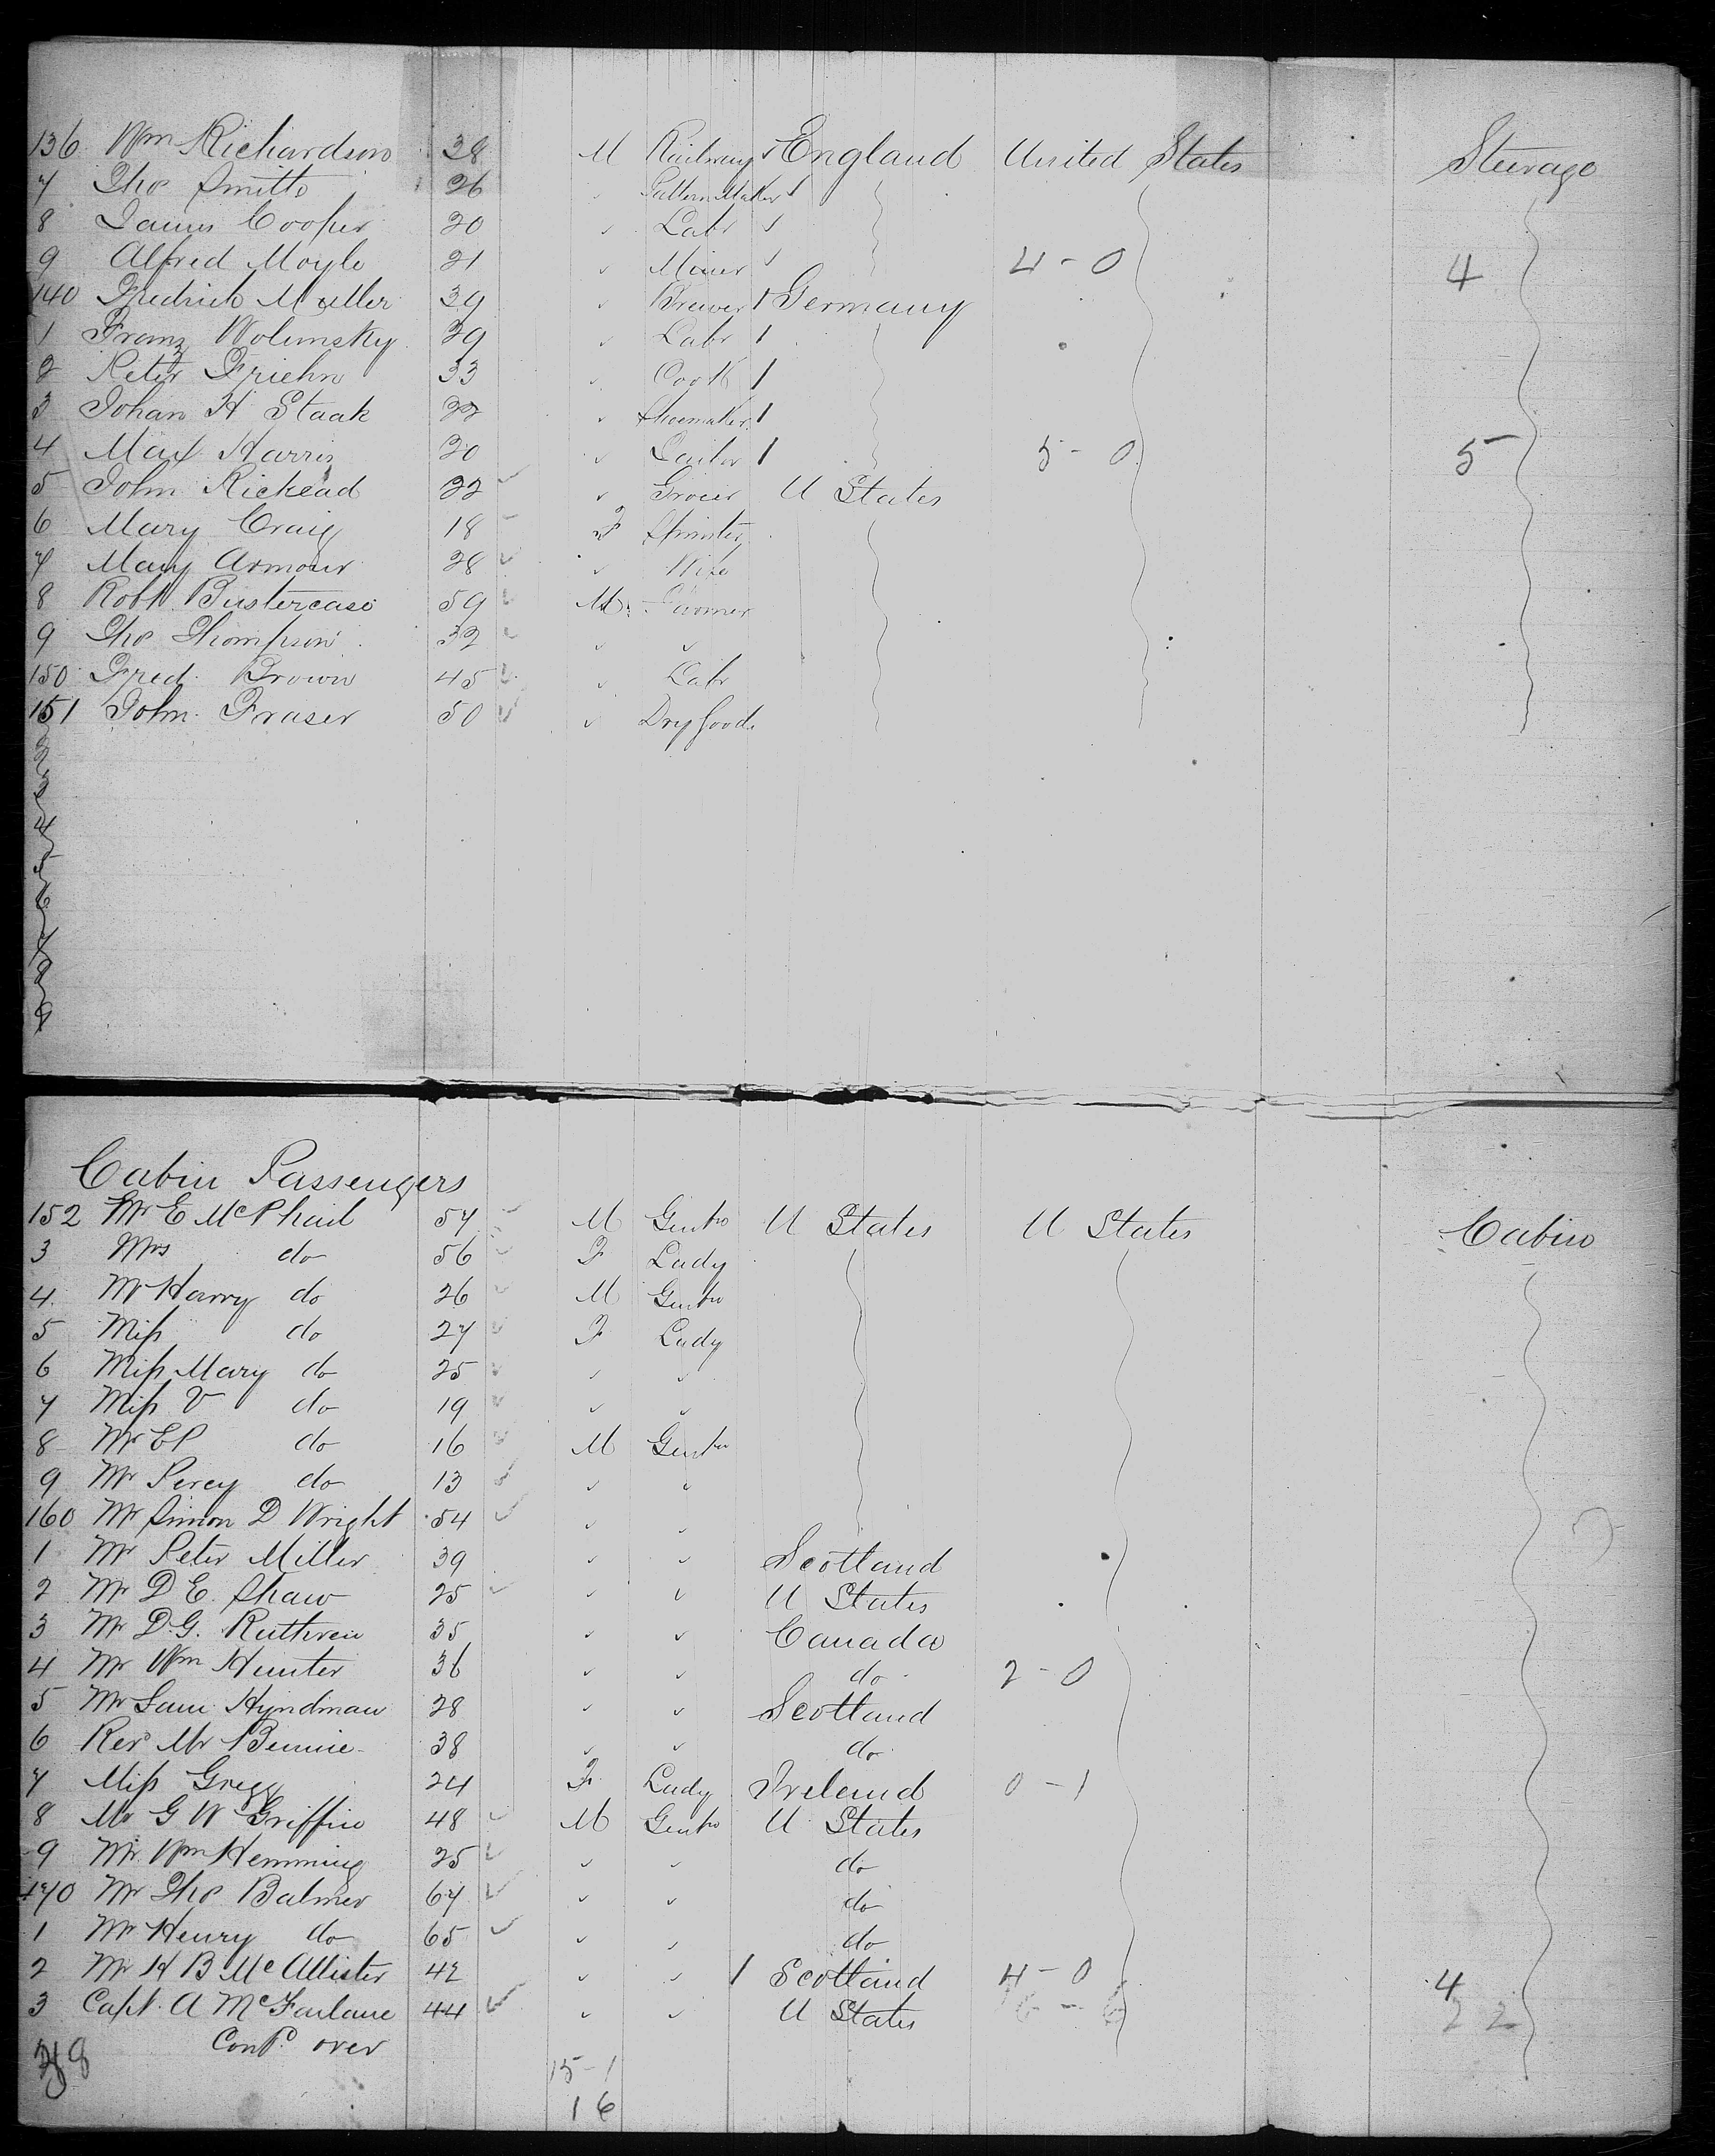 136 Wm Richardson 38 M Railway England United States Steerage
7 Thos Smith 26 " Pattern Maker
8 James Cooper 20 " Labr
9 Alfred Moyle 21 " Miner 4 - 0 4
140 Fredrich Muller 39 " Brewer Germany
1 Franz Wolinsky 29 " Labr
2 Peter Friehn 33 " Cook
3 Johan H Staak 22 " Shoemaker
4 Max Harris 20 " Tailor 5 - 0 5
5 John Rickead 22 " Grocer U States
6 Mary Craig 18 F Spinster
7 Mary Armour 28 " Wife
8 Robt Bustercase 59 M Farmer
9 Thos Thompson 32 " "
150 Fred. Brown 45 " Labr
151 John Fraser 50 " Dry Goods
2
3
4
5
6
7
8
9
Cabin Passengers
152 Mr E McPhail 57 M Gentn U States U States Cabin
3 Mrs do 56 F Lady
4 Mr Harry do 26 M Gentn
5 Miss do 27 F Lady
6 Miss Mary do 25 " "
7 Miss V do 19 " "
8 Mr EP do 16 M Gentn
9 Mr Percy do 13 " "
160 Mr Simon D Wright 54 " "
1 Mr Peter Miller 39 " " Scotland
2 Mr D E. Shaw 25 " " U States
3 Mr D.G. Ruthven 35 " " Canada
4 Mr Wm Hunter 36 " " do 2 - 0
5 Mr Saml Hyndman 28 " " Scotland
6 Rev Mr Bennie 38 " " do
7 Miss Gregg 24 F Lady Ireland 0 - 1
8 Mr G W Griffin 48 M Gentn U States
9 Mr Wm Hemming 25 " " do
170 Mr Thos Balmer 67 " " do
1 Mr Henry do 65 " " do
2 Mr H B McAllister 42 " " Scotland 4 - 0 4
3 Capt. A McFarlane 44 " " U States 22
Contd. over
15 - 1
16